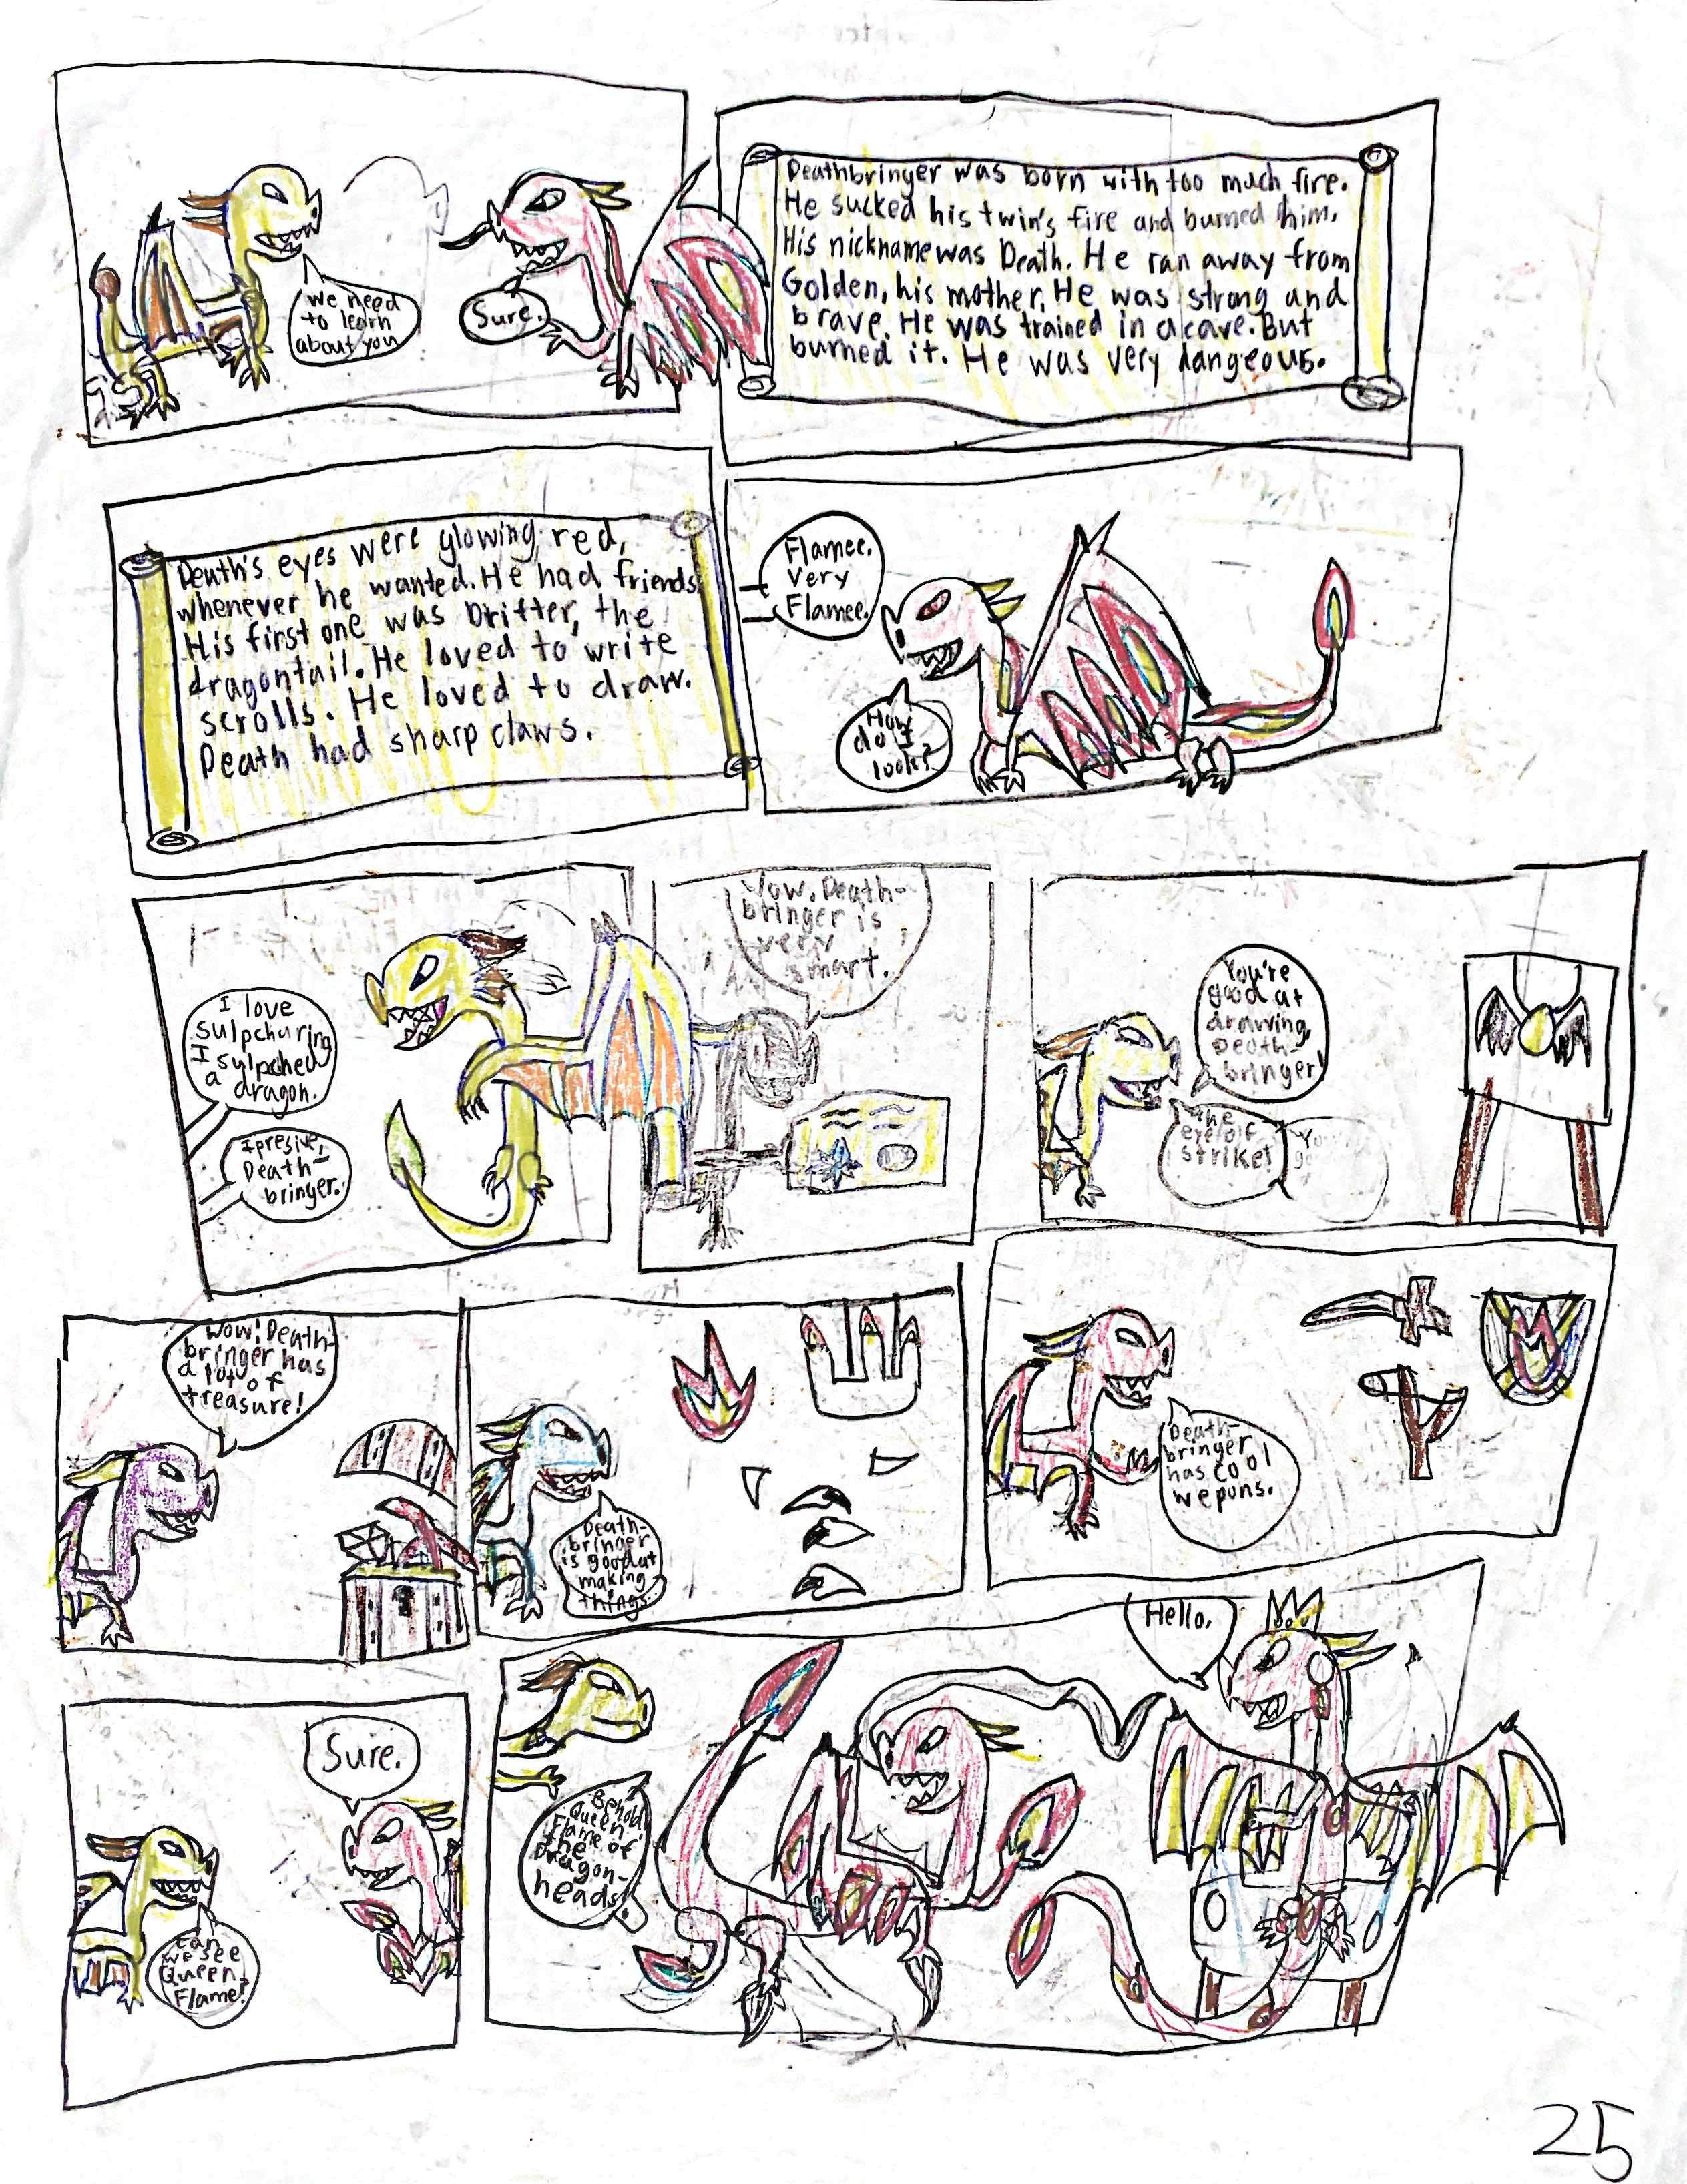 we need
to learn
about you
Sure.
Deathbringer was born with too much fire.
He sucked his twin's fire and burned him.
His nickname was Death. He ran away from
Golden, his mother. He was strong and
brave. He was trained in a cave. But
burned it. He was very dangeous.
Death's eyes were glowing red,
whenever he wanted. He had friends.
His first one was Drifter, the
dragontail. He loved to write
scrolls. He loved to draw.
Death had sharp claws.
Flamee.
Very
Flamee.
How
do I
look?
I love
sulpchuring
I sylpched
a
dragon.
Ipresive,
Death-
bringer.
Wow. Death-
bringer is
very
smart.
You're
good at
drawing,
Death-
bringer!
The
eye of
strike!
Wow! Death-
bringer has
a lot of
treasure!
Death-
bringer
is good at
making
things.
Death-
bringer
has cool
wepons.
Sure.
Can
we see
Queen
Flame?
Behold
Queen
Flame of
the
Dragon-
heads!
Hello.
25